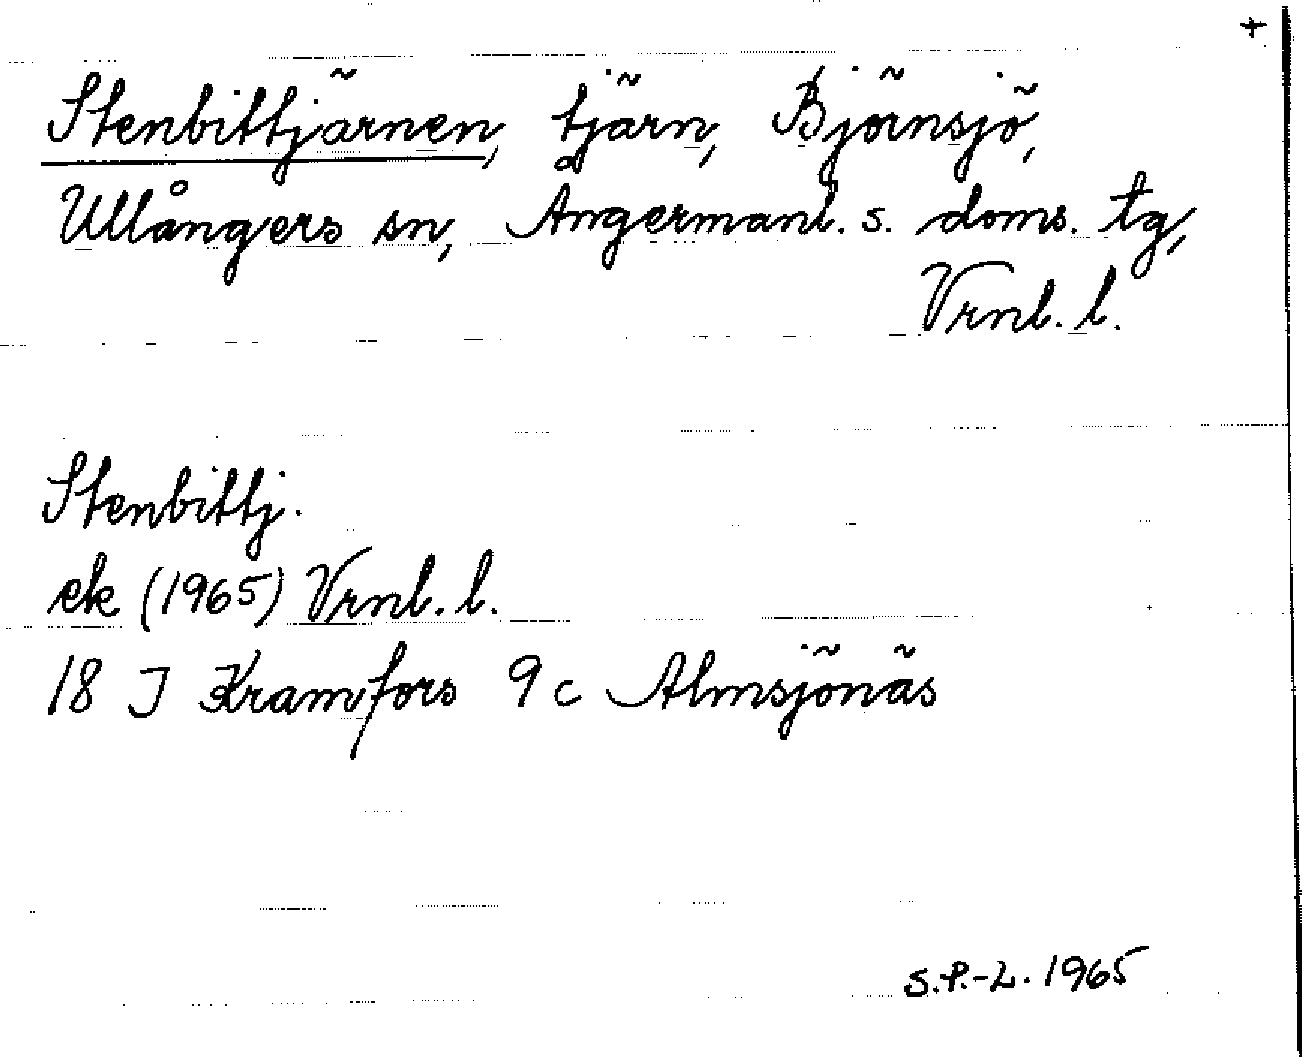 +
Stenbittjärnen, tjärn, Björnsjö,
Ullångers sn, Ångermanl. s. doms. tg,
Vrnl. l.
Stenbittj.
ek (1965) Vrnl. l.
18 J Kramfors 9 c Almsjönäs
S.P.-L. 1965